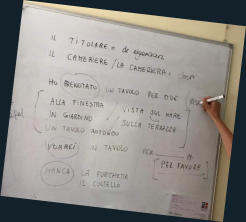 IL TITOLARE =
IL CAMERIERE / LA CAMERIERA
HO PRENOTATO UN TAVOLO PER DUE
ALLA FINESTRA
IN GIARDINO
VISTA SUL MARE
SULLA TERRAZZA
UN TAVOLO ROTONDO
VORREI UN TAVOLO PER
PER FAVORE
MANCA LA FORCHETTA
IL COLTELLO